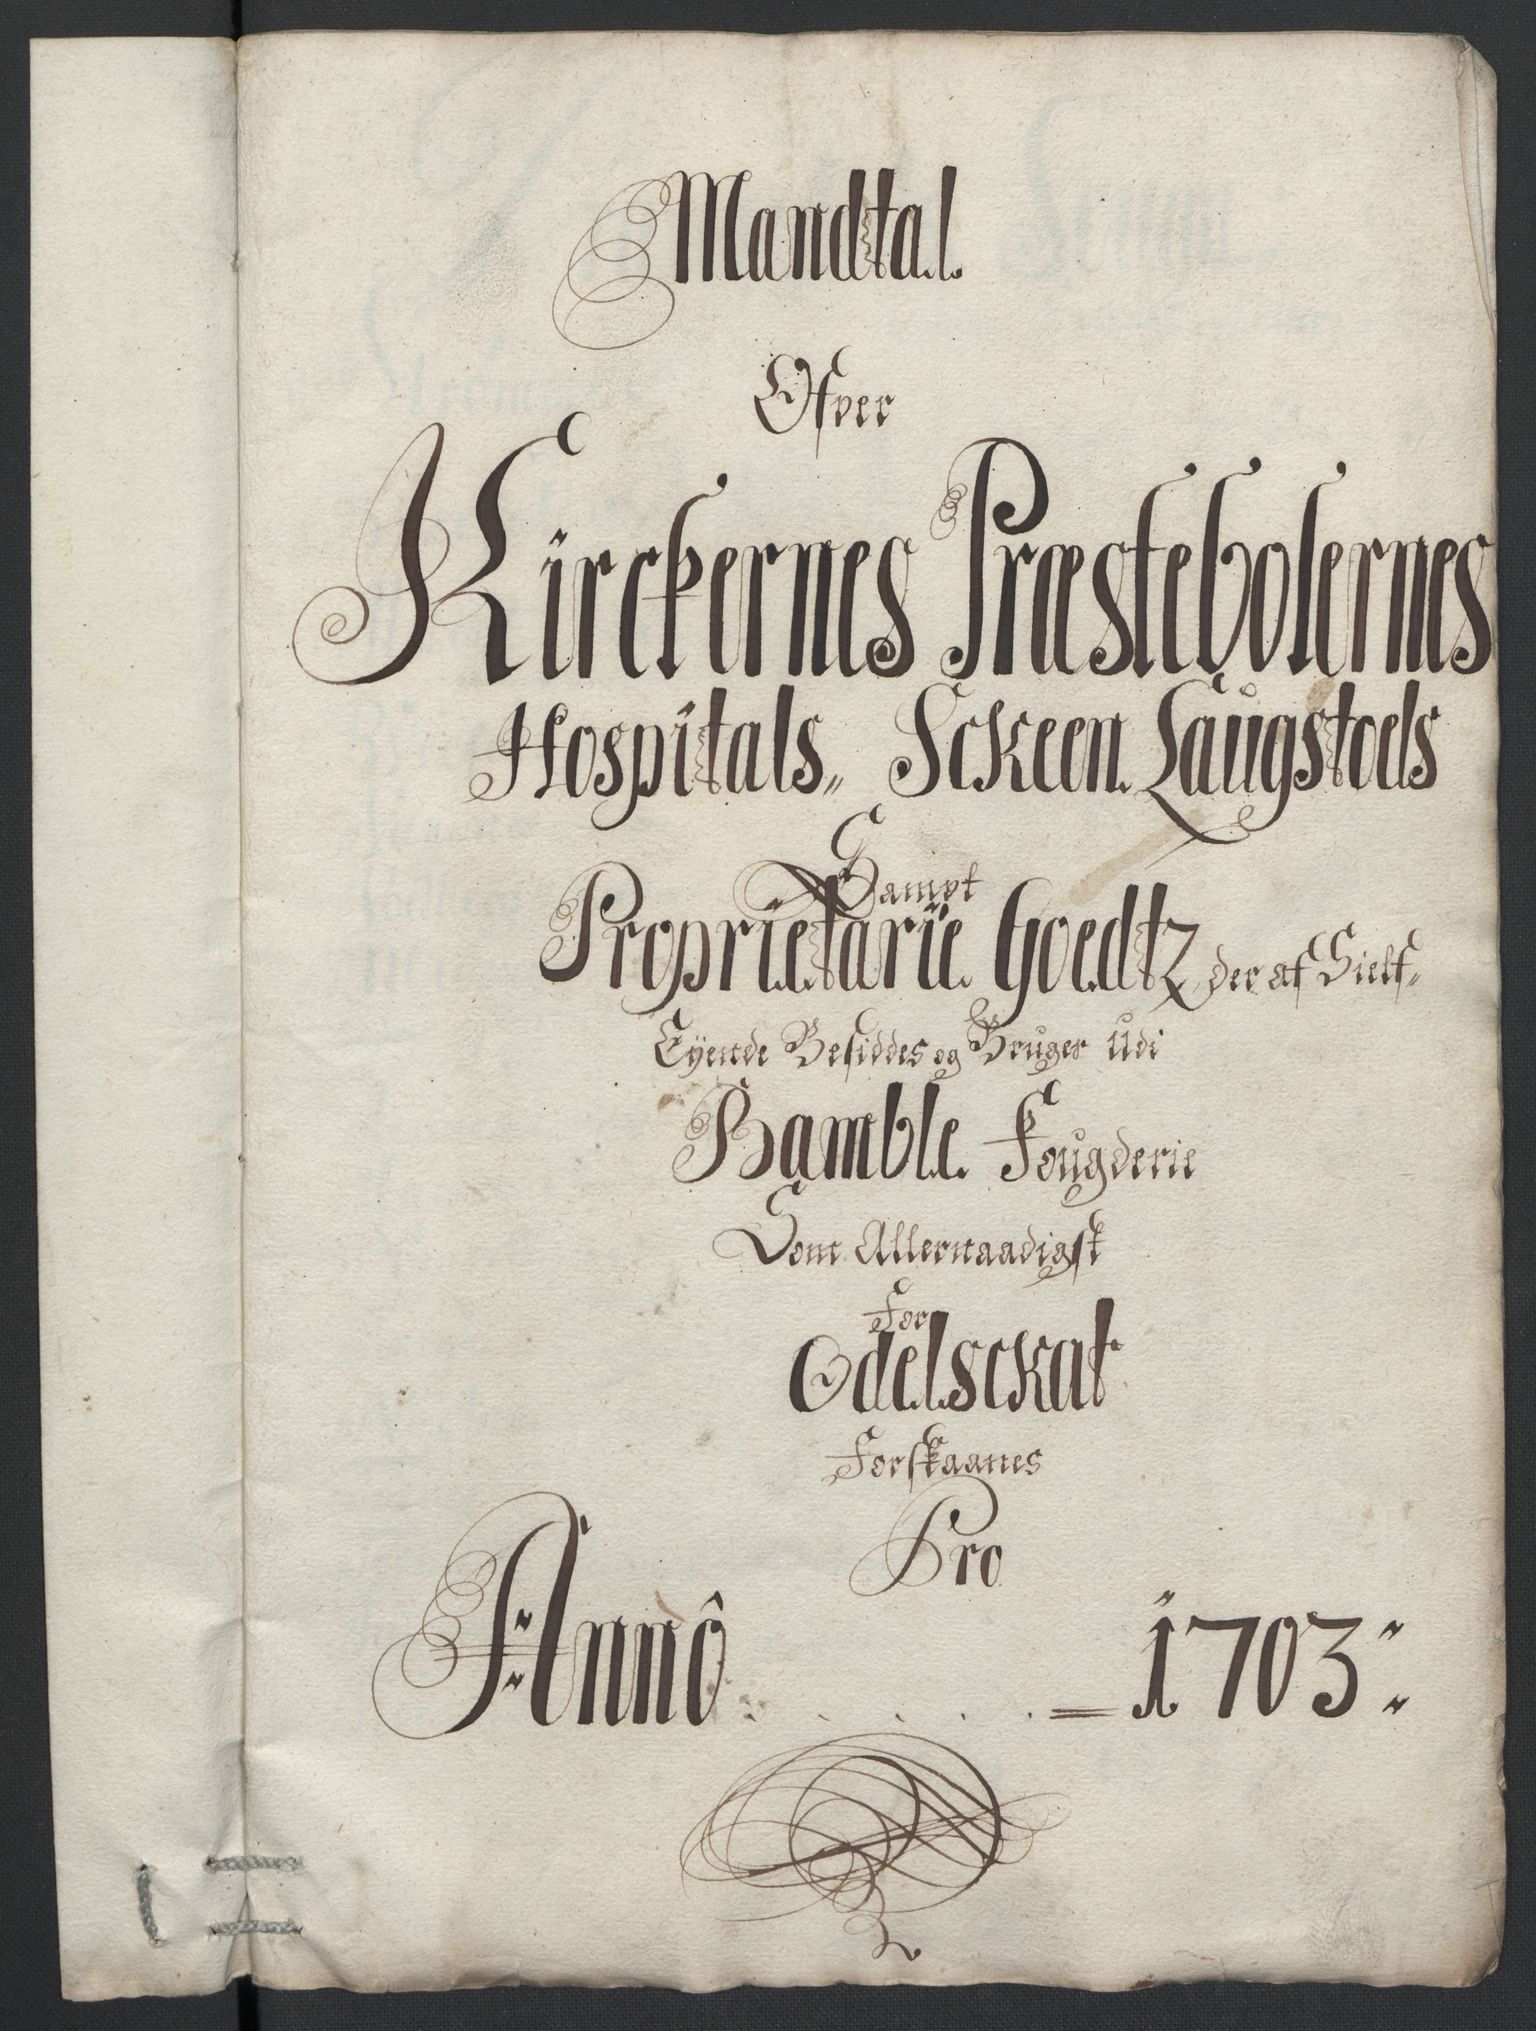 Mandtal.
Ofver
Kirckernes Præstebolernes
Hospitals,, Sckeen. Laugstoels
Sampt
Proprietarie Goedtz der af Sielf-
Eyende Besiddes og Bruges udi
Bamble Fougderie
Som Allernaadigst
For
Odelsckat
Forskaanes
Pro
Annô. . . . . = 1703: